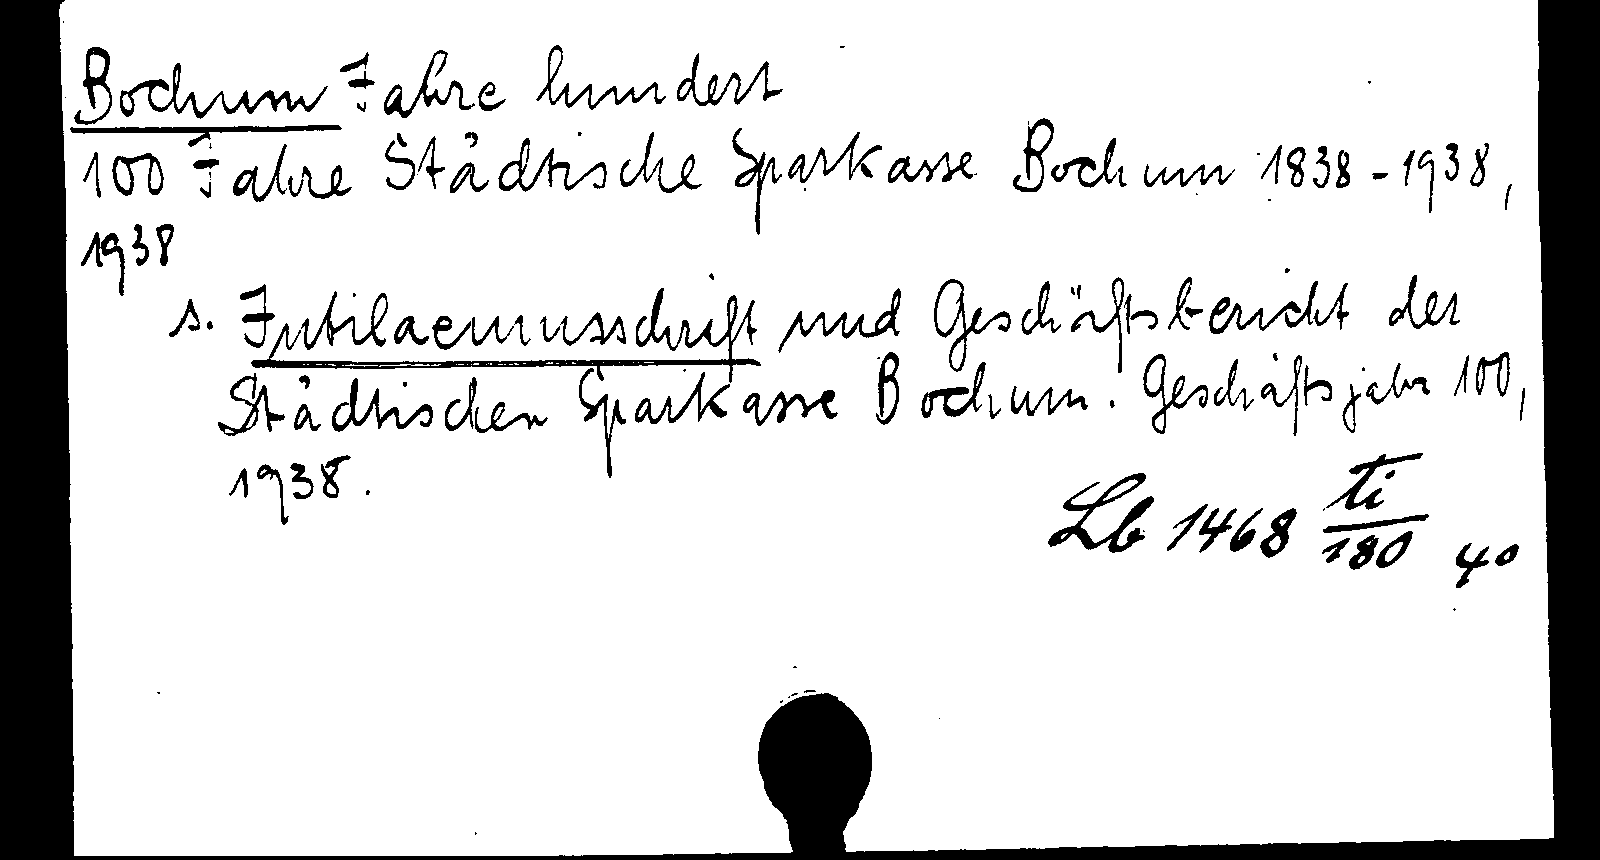 Bochum Jahre hundert
100 Jahre Städtische Sparkasse Bochum 1838-1938,
1938
s. Jubilaeumsschrift und Geschäftsbericht der
Städtischen Sparkasse Bochum. Geschäftsjahr 100,
1938.
Lb 1468 ti/180 4°